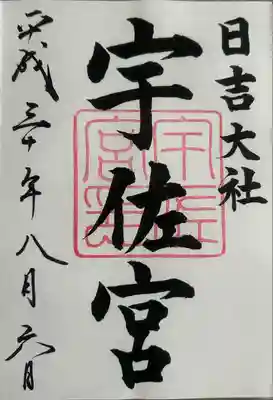 日吉大社
宇佐宮
平成三十年八月六日